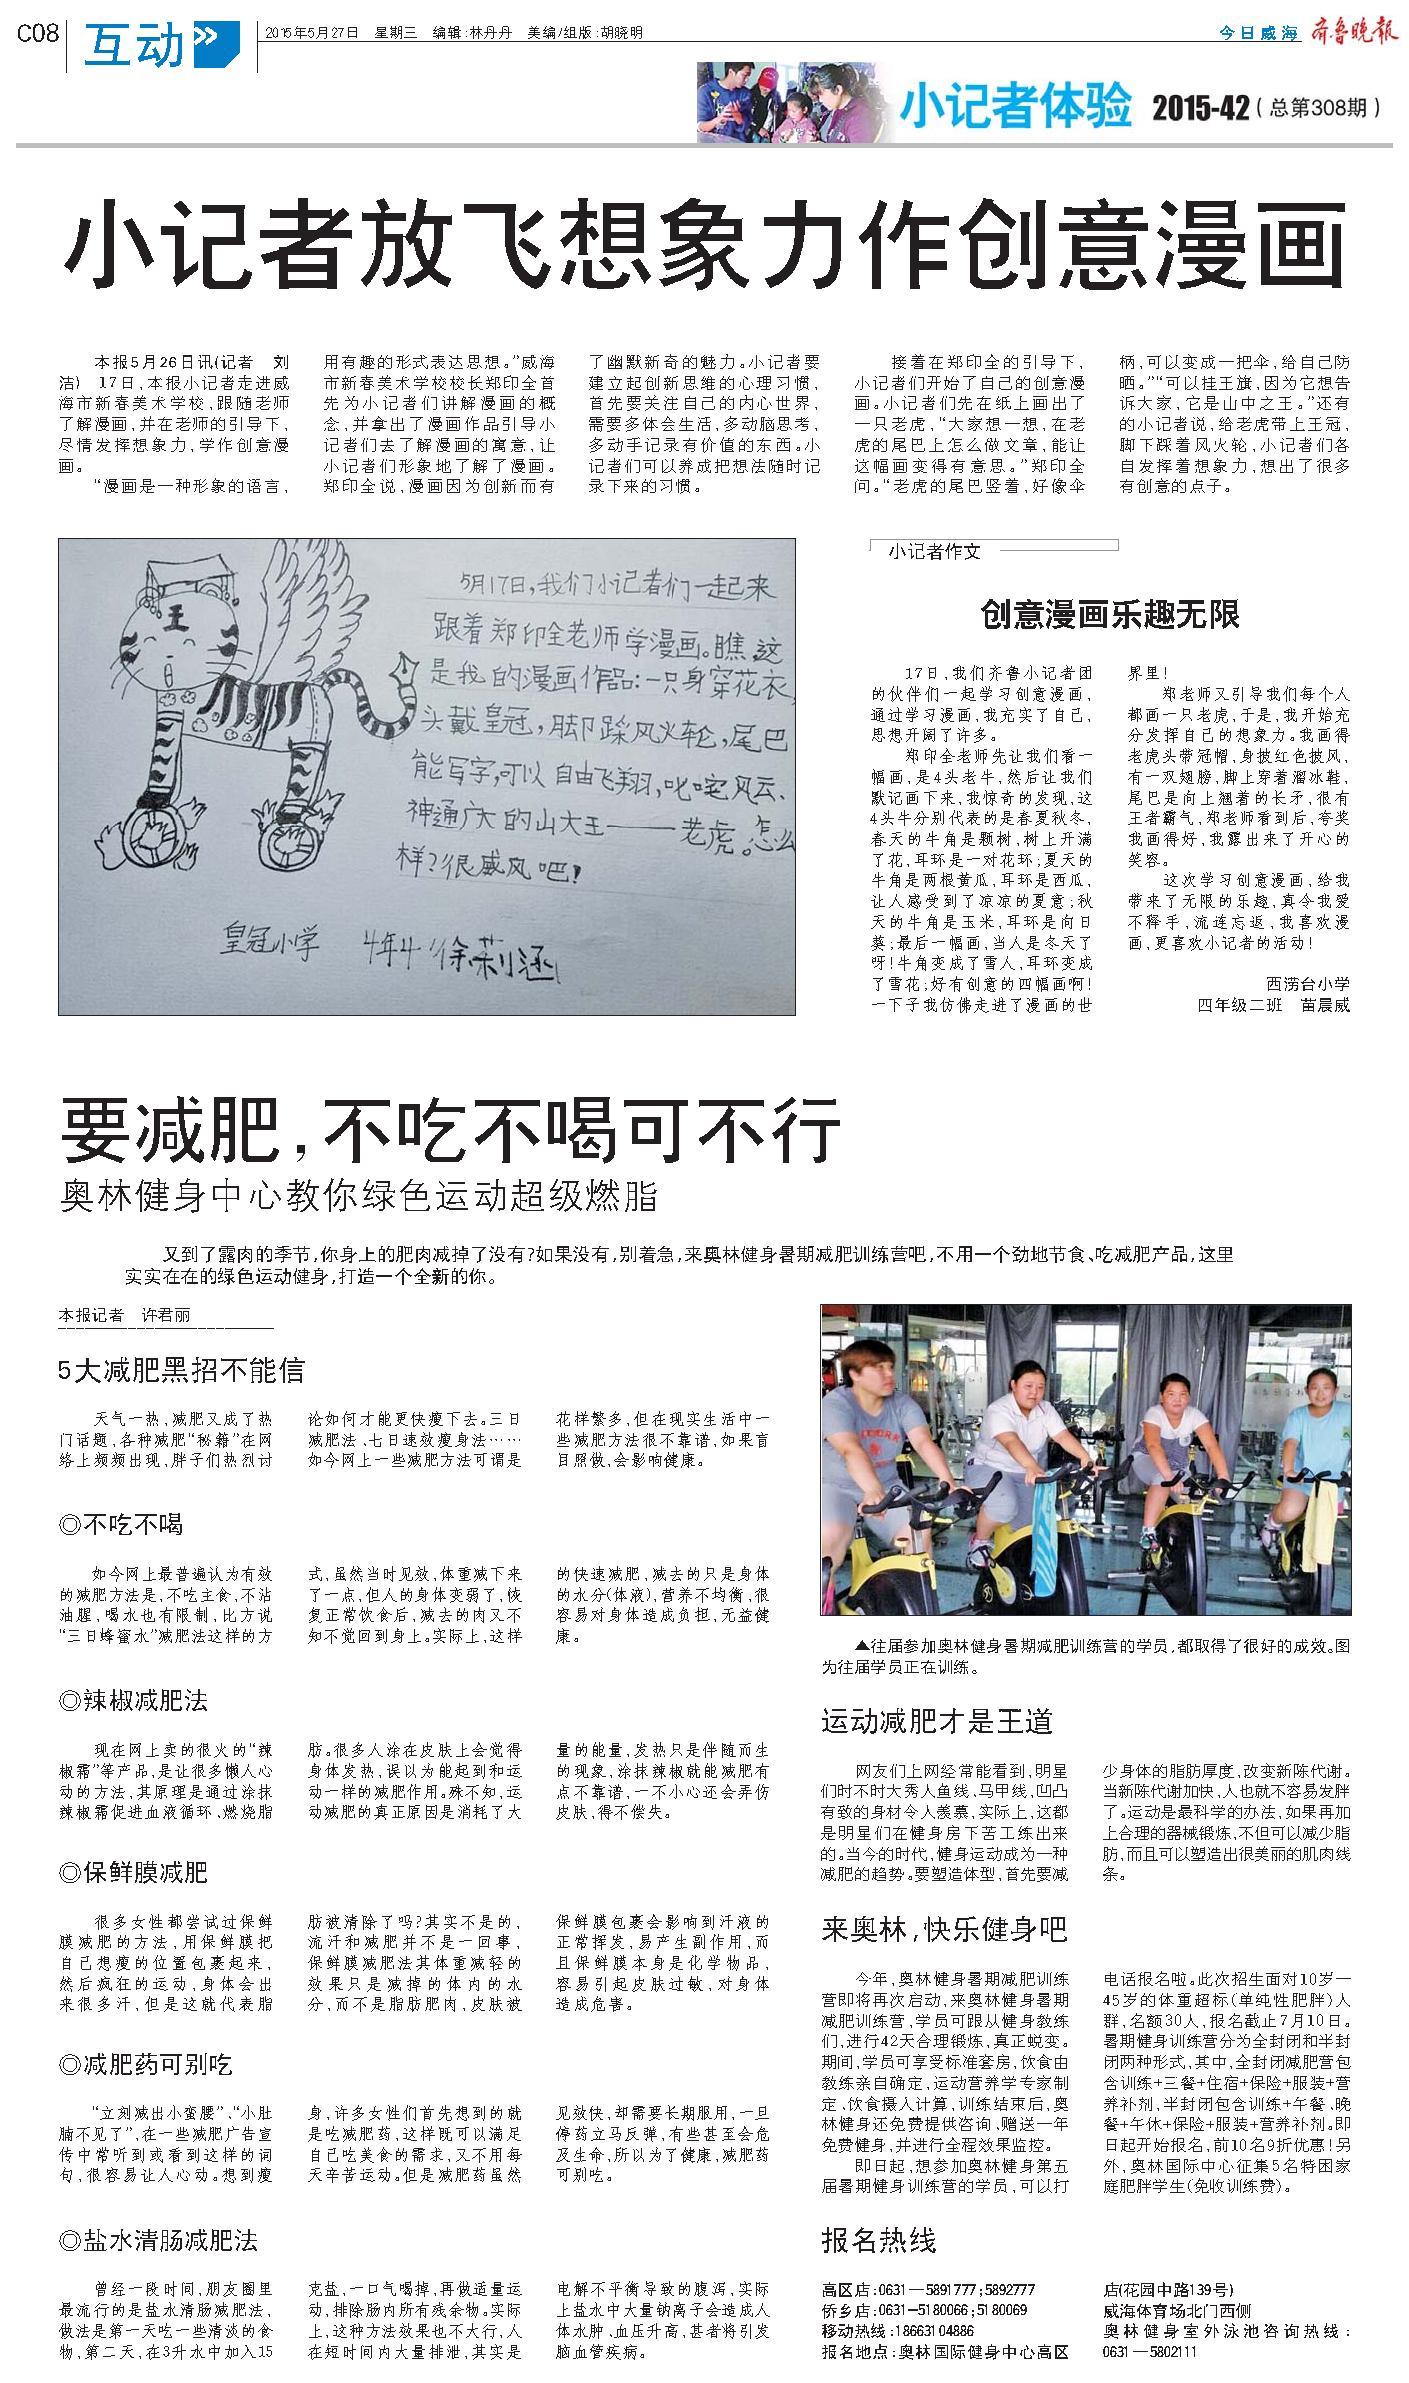 C08
互动
2015年5月27日　星期三　编辑:林丹丹　美编/组版:胡晓明
今日威海
齐鲁晚报
小记者体验 2015-42（总第308期）
小记者放飞想象力作创意漫画
本报5月26日讯(记者　刘
洁)　17日,本报小记者走进威
海市新春美术学校,跟随老师
了解漫画,并在老师的引导下,
尽情发挥想象力,学作创意漫
画。
“漫画是一种形象的语言,
用有趣的形式表达思想。”威海
市新春美术学校校长郑印全首
先为小记者们讲解漫画的概
念,并拿出了漫画作品引导小
记者们去了解漫画的寓意,让
小记者们形象地了解了漫画。
郑印全说,漫画因为创新而有
了幽默新奇的魅力。小记者要
建立起创新思维的心理习惯,
首先要关注自己的内心世界,
需要多体会生活,多动脑思考,
多动手记录有价值的东西。小
记者们可以养成把想法随时记
录下来的习惯。
接着在郑印全的引导下,
小记者们开始了自己的创意漫
画。小记者们先在纸上画出了
一只老虎,“大家想一想,在老
虎的尾巴上怎么做文章,能让
这幅画变得有意思。”郑印全
问。“老虎的尾巴竖着,好像伞
柄,可以变成一把伞,给自己防
晒。”“可以挂王旗,因为它想告
诉大家,它是山中之王。”还有
的小记者说,给老虎带上王冠,
脚下踩着风火轮,小记者们各
自发挥着想象力,想出了很多
有创意的点子。
王
5月17日,我们小记者们一起来
跟着郑印全老师学漫画。瞧这
是我的漫画作品:一只身穿花衣,
头戴皇冠,脚踩风火轮,尾巴
能写字,可以自由飞翔,叱咤风云、
神通广大的山大王——老虎。怎么
样?很威风吧!
皇冠小学　4年4　徐莉涵
小记者作文
创意漫画乐趣无限
17日,我们齐鲁小记者团
的伙伴们一起学习创意漫画,
通过学习漫画,我充实了自己,
思想开阔了许多。
郑印全老师先让我们看一
幅画,是4头老牛,然后让我们
默记画下来,我惊奇的发现,这
4头牛分别代表的是春夏秋冬,
春天的牛角是颗树,树上开满
了花,耳环是一对花环;夏天的
牛角是两根黄瓜,耳环是西瓜,
让人感受到了凉凉的夏意;秋
天的牛角是玉米,耳环是向日
葵;最后一幅画,当人是冬天了
呀!牛角变成了雪人,耳环变成
了雪花;好有创意的四幅画啊!
一下子我仿佛走进了漫画的世
界里!
郑老师又引导我们每个人
都画一只老虎,于是,我开始充
分发挥自己的想象力。我画得
老虎头带冠帽,身披红色披风,
有一双翅膀,脚上穿着溜冰鞋,
尾巴是向上翘着的长矛,很有
王者霸气,郑老师看到后,夸奖
我画得好,我露出来了开心的
笑容。
这次学习创意漫画,给我
带来了无限的乐趣,真令我爱
不释手,流连忘返,我喜欢漫
画,更喜欢小记者的活动!
西涝台小学
四年级二班　苗晨威
要减肥,不吃不喝可不行
奥林健身中心教你绿色运动超级燃脂
又到了露肉的季节,你身上的肥肉减掉了没有?如果没有,别着急,来奥林健身暑期减肥训练营吧,不用一个劲地节食、吃减肥产品,这里
实实在在的绿色运动健身,打造一个全新的你。
本报记者　许君丽
5大减肥黑招不能信
天气一热,减肥又成了热
门话题,各种减肥“秘籍”在网
络上频频出现,胖子们热烈讨
论如何才能更快瘦下去。三日
减肥法、七日速效瘦身法……
如今网上一些减肥方法可谓是
花样繁多,但在现实生活中一
些减肥方法很不靠谱,如果盲
目照做,会影响健康。
◎不吃不喝
如今网上最普遍认为有效
的减肥方法是,不吃主食,不沾
油腥,喝水也有限制,比方说
“三日蜂蜜水”减肥法这样的方
式,虽然当时见效,体重减下来
了一点,但人的身体变弱了,恢
复正常饮食后,减去的肉又不
知不觉回到身上。实际上,这样
的快速减肥,减去的只是身体
的水分(体液),营养不均衡,很
容易对身体造成负担,无益健
康。
◎辣椒减肥法
现在网上卖的很火的“辣
椒霜”等产品,是让很多懒人心
动的方法,其原理是通过涂抹
辣椒霜促进血液循环、燃烧脂
肪。很多人涂在皮肤上会觉得
身体发热,误以为能起到和运
动一样的减肥作用。殊不知,运
动减肥的真正原因是消耗了大
量的能量,发热只是伴随而生
的现象,涂抹辣椒就能减肥有
点不靠谱,一不小心还会弄伤
皮肤,得不偿失。
◎保鲜膜减肥
很多女性都尝试过保鲜
膜减肥的方法,用保鲜膜把
自己想瘦的位置包裹起来,
然后疯狂的运动,身体会出
来很多汗,但是这就代表脂
肪被清除了吗?其实不是的,
流汗和减肥并不是一回事,
保鲜膜减肥法其体重减轻的
效果只是减掉的体内的水
分,而不是脂肪肥肉,皮肤被
保鲜膜包裹会影响到汗液的
正常挥发,易产生副作用,而
且保鲜膜本身是化学物品,
容易引起皮肤过敏,对身体
造成危害。
◎减肥药可别吃
“立刻减出小蛮腰”、“小肚
腩不见了”,在一些减肥广告宣
传中常听到或看到这样的词
句,很容易让人心动。想到瘦
身,许多女性们首先想到的就
是吃减肥药,这样既可以满足
自己吃美食的需求,又不用每
天辛苦运动。但是减肥药虽然
见效快,却需要长期服用,一旦
停药立马反弹,有些甚至会危
及生命,所以为了健康,减肥药
可别吃。
◎盐水清肠减肥法
曾经一段时间,朋友圈里
最流行的是盐水清肠减肥法,
做法是第一天吃一些清淡的食
物,第二天,在3升水中加入15
克盐,一口气喝掉,再做适量运
动,排除肠内所有残余物。实际
上,这种方法效果也不大行,人
在短时间内大量排泄,其实是
电解不平衡导致的腹泻,实际
上盐水中大量钠离子会造成人
体水肿、血压升高,甚者将引发
脑血管疾病。
▲往届参加奥林健身暑期减肥训练营的学员,都取得了很好的成效。图
为往届学员正在训练。
运动减肥才是王道
网友们上网经常能看到,明星
们时不时大秀人鱼线、马甲线,凹凸
有致的身材令人羡慕,实际上,这都
是明星们在健身房下苦工练出来
的。当今的时代,健身运动成为一种
减肥的趋势。要塑造体型,首先要减
少身体的脂肪厚度,改变新陈代谢。
当新陈代谢加快,人也就不容易发胖
了。运动是最科学的办法,如果再加
上合理的器械锻炼,不但可以减少脂
肪,而且可以塑造出很美丽的肌肉线
条。
来奥林,快乐健身吧
今年,奥林健身暑期减肥训练
营即将再次启动,来奥林健身暑期
减肥训练营,学员可跟从健身教练
们,进行42天合理锻炼,真正蜕变。
期间,学员可享受标准套房,饮食由
教练亲自确定,运动营养学专家制
定、饮食摄入计算,训练结束后,奥
林健身还免费提供咨询、赠送一年
免费健身,并进行全程效果监控。
即日起,想参加奥林健身第五
届暑期健身训练营的学员,可以打
电话报名啦。此次招生面对10岁一
45岁的体重超标(单纯性肥胖)人
群,名额30人,报名截止7月10日。
暑期健身训练营分为全封闭和半封
闭两种形式,其中,全封闭减肥营包
含训练+三餐+住宿+保险+服装+营
养补剂,半封闭包含训练+午餐、晚
餐+午休+保险+服装+营养补剂。即
日起开始报名,前10名9折优惠!另
外,奥林国际中心征集5名特困家
庭肥胖学生(免收训练费)。
报名热线
高区店:0631—5891777;5892777
侨乡店:0631—5180066;5180069
移动热线:18663104886
报名地点:奥林国际健身中心高区
店(花园中路139号)
威海体育场北门西侧
奥林健身室外泳池咨询热线:
0631—5802111